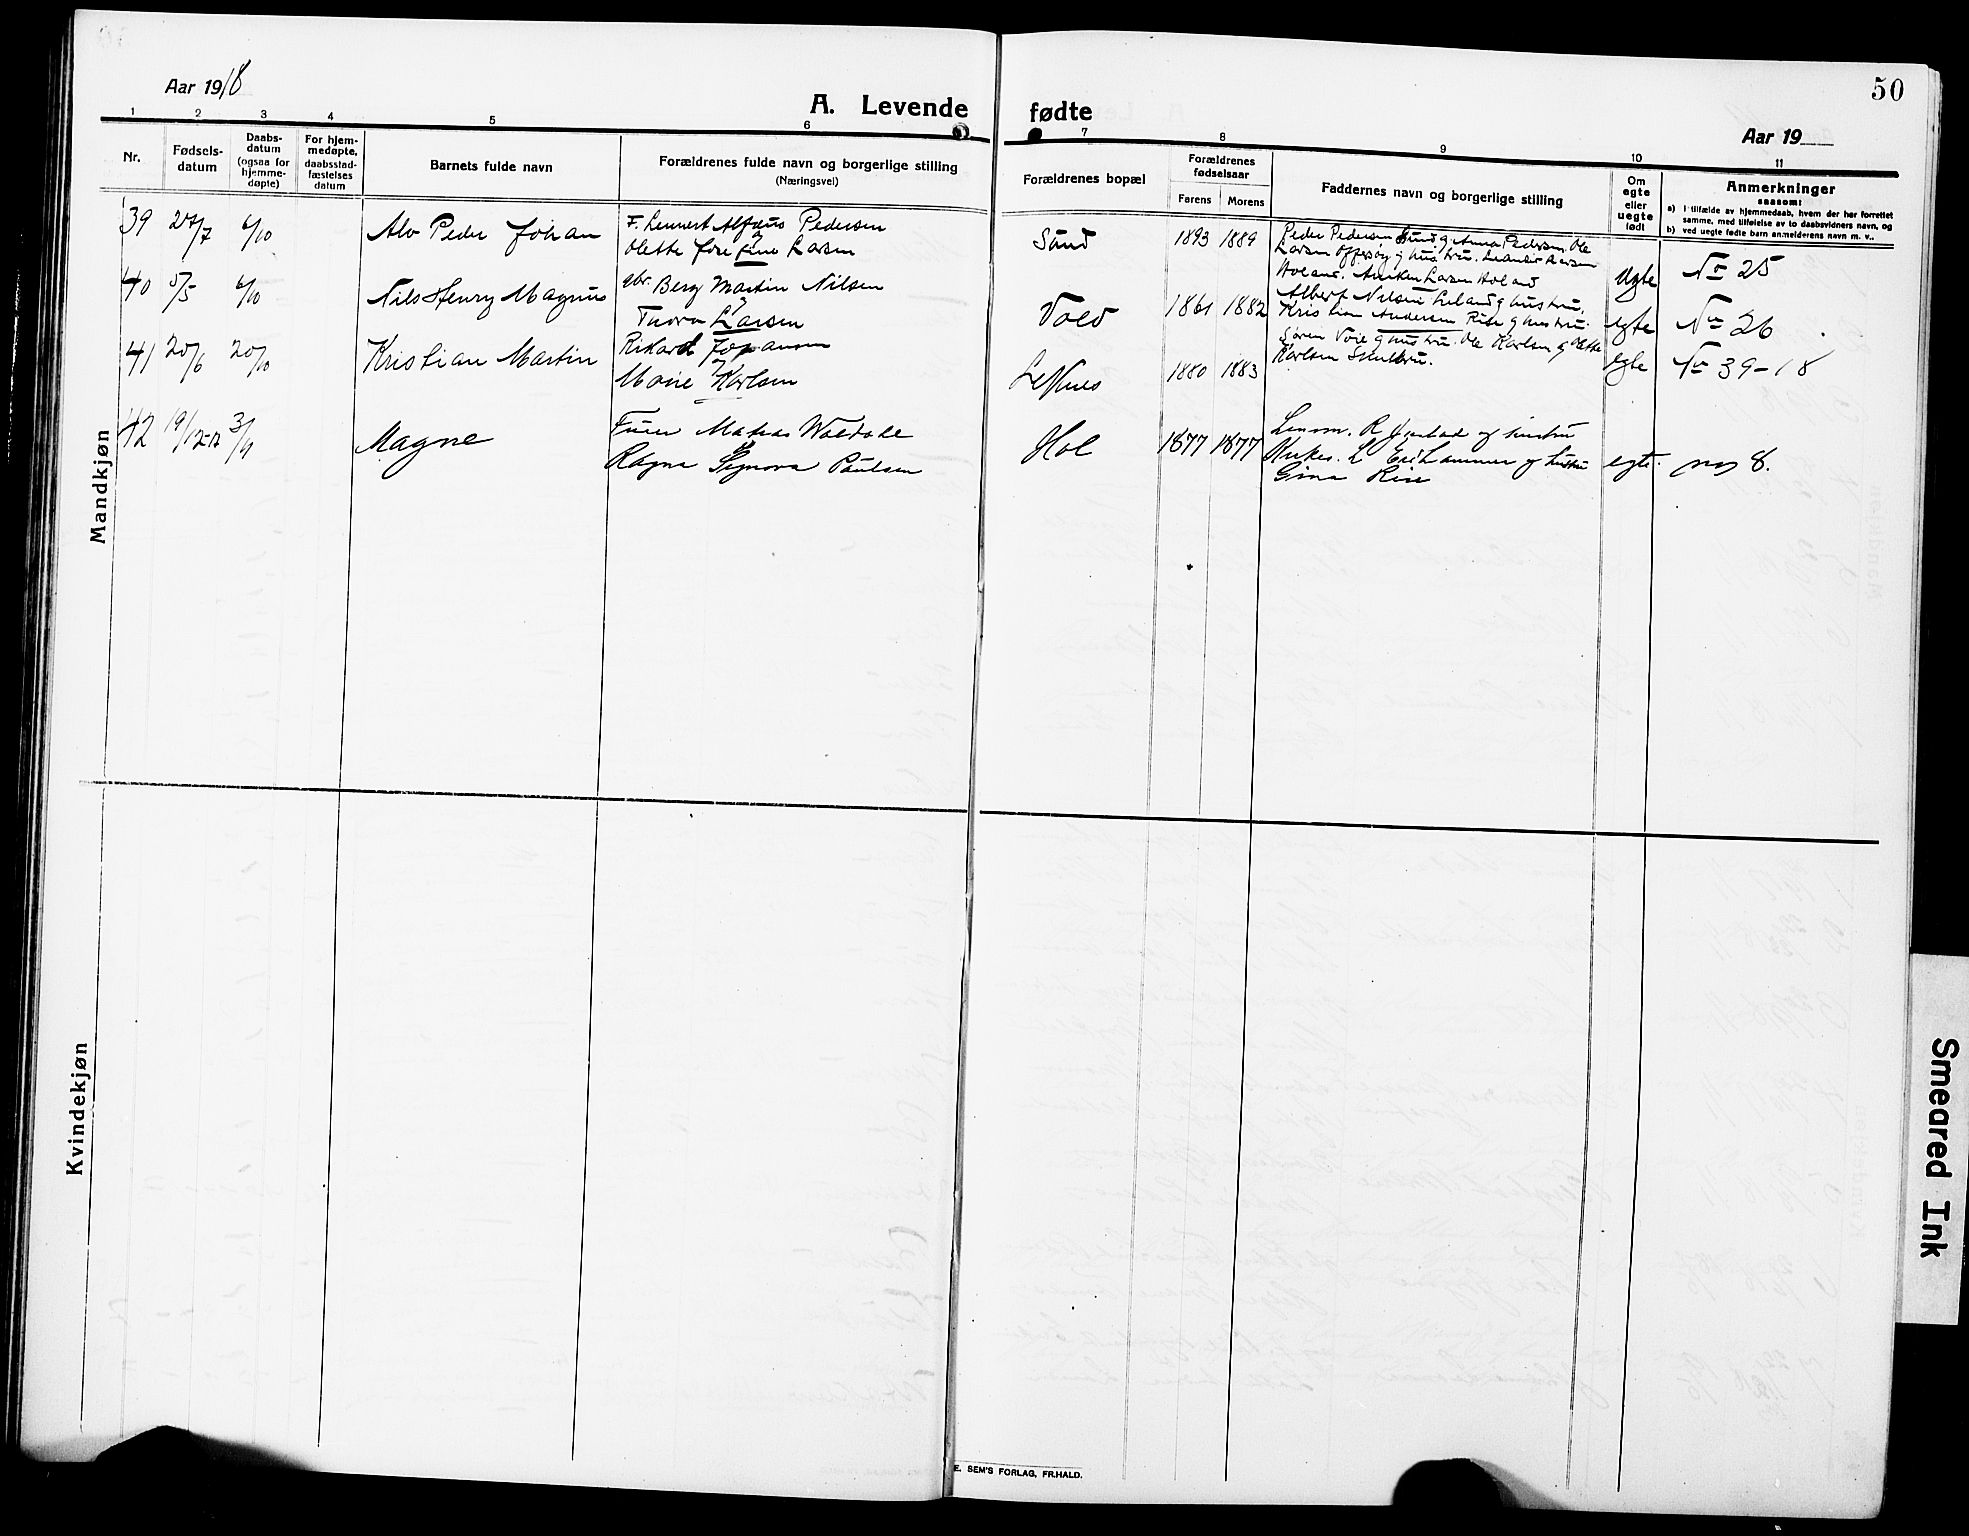 50
Aar 1918
A. Levende fødte
Aar 19
1 2 3 4 5 6 7 8 9 10 11
Nr.
Fødsels-
datum
Daabs-
datum
(ogsaa for
hjemme-
døpte)
For hjem-
medøpte,
daabsstad-
fæstelses
datum
Barnets fulde navn
Forældrenes fulde navn og borgerlige stilling
(Næringsvei)
Forældrenes bopæl
Forældrenes
fødselsaar
Farens Morens
Faddernes navn og borgerlige stilling
Om
egte
eller
uegte
født
Anmerkninger
saasom:
a) I tilfælde av hjemmedaab, hvem der har forrettet
samme, med tilføielse av to daabsvidners navn, og
b) ved uegte fødte barn anmelderens navn m. v..
Mandkjøn
39 27/7 6/10 Alv Peder Johan
F. Lennert Alfæus Pedersen
Olette Josefine Larsen
Sund 1893 1889
Peder Pedersen Sund og Anna Pedersen. Ole
Larsen Offersøy og hustru. Leander Larsen
Holand. Anriken Larsen Holand
Uegte No 25
40 5/5 6/10 Nils Henry Magnus
gbr. Berg Martin Nilsen
Thora Larsen
Vold 1861 1882
Albert Nilsen Leland og hustru.
Kristian Andersen Rise og hustru.
egte No 26
41 20/6 20/10 Kristian Martin
Rikard Johansen
Marie Karlsen
Leknes 1880 1883
Søren Voie og hustru. Ole Karlsen og Olette
Karlsen Skulbru.
egte No 39-18
42 19/12-17 3/11 Magne
Matias Woldahl
Ragna Signora Paulsen
Hol 1877 1877
Lensm. R. og hustru
og hustru
Gina Rise
egte. no 8.
Kvindekjøn
E. SEM'S FORLAG, FR.HALD.
Smeared Ink